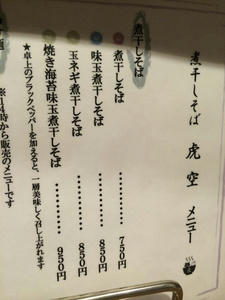 煮干しそば 虎空 メニュー
煮干しそば
煮干しそば ………… 750円
味玉煮干しそば ………… 850円
玉ネギ煮干しそば ………… 850円
焼き海苔味玉煮干しそば ………… 950円
★卓上のブラックペッパーを加えると、一層美味しく召し上がれます
※14時から販売のメニューです